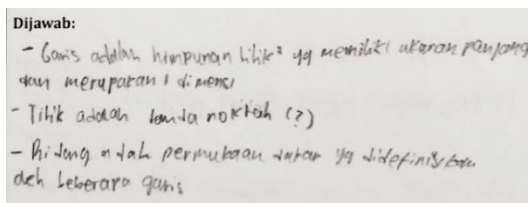 Dijawab:
- Garis adalah himpunan titik² yg memiliki ukuran panjang
dan merupakan 1 dimensi
- Titik adalah tanda noktah (?)
- Bidang adalah permukaan datar yg didefinisikan
oleh beberapa garis